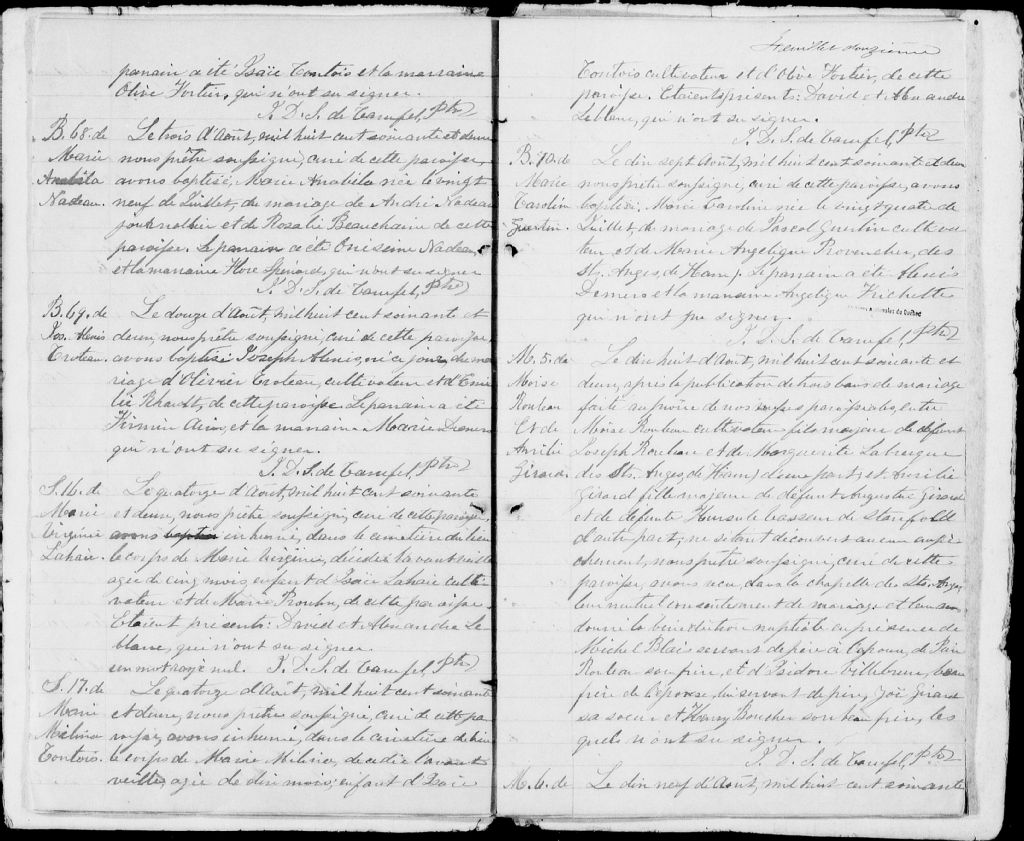 parrain a été Isaïe Tontois et la marraine
Olive Fortier, qui n'ont su signer.
J. D. S. de Camfel, Ptre
B. 68. de Le trois d'Août, mil huit cent soixante et deux
Marie nous prêtre soussigné, curé de cette paroisse,
Anabila avons baptisé, Marie Anabila née le vingt
Nadeau. neuf de Juillet, du mariage de André Nadeau
journalier et de Rosalie Beauchaine de cette
paroisse. Le parrain a été Onisime Nadeau,
et la marraine Flore Spénard, qui n'ont su signer
J. D. S. de Camfel, Ptre
B. 69. de Le douze d'Août, mil huit cent soixante et
Jos. Alexis deux, nous prêtre soussigné, curé de cette paroisse,
Croteau. avons baptisé Joseph Alexis, né ce jour, du ma
riage d'Olivier Croteau, cultivateur et d'Emi
lie Rhault, de cette paroisse. Le parrain a été
Firmin et la marraine Marie Demers
qui n'ont su signer.
J. D. S. de Camfel, Ptre
S. 16. de Le quatorze d'Août, mil huit cent soixante
Marie et deux, nous prêtre soussigné, curé de cette paroisse,
Virginie avons baptisé inhumé, dans le cimetière du lieu
Lahaie. le corps de Marie Virginie, décédée l'avant veille
agée de cinq mois, enfant d'Isaïe Lahaie culti
vateur et de Marie Rouleau, de cette paroisse.
Etaient présents: David et Alexandre Le
blanc, qui n'ont su signer.
un mot rayé nul. J. D. S. de Camfel, Ptre
S. 17. de Le quatorze d'Août, mil huit cent soixante
Marie et deux, nous prêtre soussigné, curé de cette pa
Mélina roisse, avons inhumé, dans le cimetière du lieu
Tontois. le corps de Marie Mélina, décédée l'avant
veille, agée de dix mois, enfant d'Isaïe
Feuillet onzième
Tontois cultivateur et d'Olive Fortier, de cette
paroisse. Etaient présents: David et Alexandre
Leblanc, qui n'ont su signer.
J. D. S. de Camfel, Ptre
B. 70. de Le dix sept Août, mil huit cent soixante et deux
Marie nous prêtre soussigné, curé de cette paroisse, avons
Caroline baptisé, Marie Caroline née le vingt quatre de
Guertin. Juillet, du mariage de Pascal Guertin cultiva
teur et de Marie Angélique Provencher, des
Sts. Anges, de Ham. Le parrain a été Alexis
Demers et la marraine Angélique Frichette
qui n'ont pu signer.
Nationales du Québec
J. D. S. de Camfel, Ptre
M. 5. de Le dix huit d'Août, mil huit cent soixante et
Moise deux, après la publication de trois bans de mariage
Rouleau faite au prône de nos messes paroissiales, entre
Et de Moïse Rouleau cultivateur fils majeur de défunt
Amélie Joseph Rouleau et de Marguerite Labrecque
Girard. des Sts. Anges, de Ham, d'une part; et Amélie
Girard fille majeure de défunt Augustin Girard
et de défunte Ursule Vasseur de Stanfold
d'autre part; ne s'étant découvert aucun empê
chement, nous prêtre soussigné, curé de cette
paroisse, avons reçu, dans la chapelle des Sts. Anges,
leur mutuel consentement de mariage et leur avons
donné la bénédiction nuptiale en présence de
Michel Blais servant de père à l'époux, de
Rouleau son frère, et d'Isidore Villeneuve, beau
frère de l'épouse, lui servant de père, Girard
sa soeur et Henry Boucher son beau frère, les
quels n'ont su signer.
J. D. S. de Camfel, Ptre
M. 6. de Le dix neuf d'Août, mil huit cent soixante